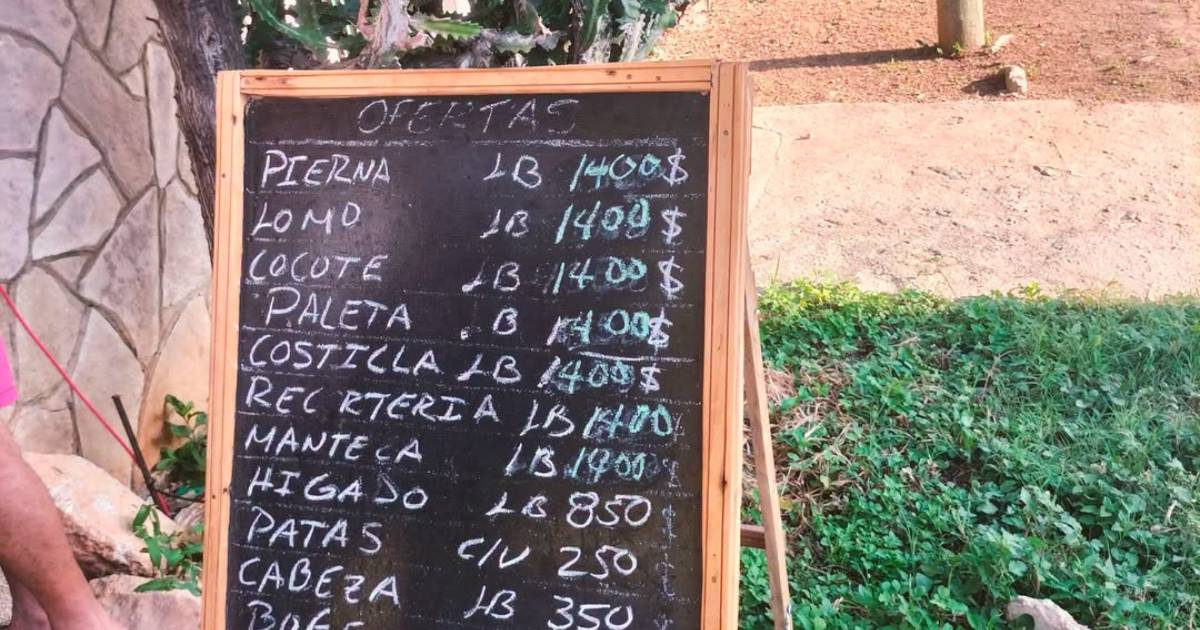 OFERTAS
PIERNA LB 1400$
LOMO LB 1400$
COCOTE LB 1400$
PALETA B 1400$
COSTILLA LB 1400$
RECRTERIA LB 1400
MANTECA LB 1400
HIGADO LB 850
PATAS C/U 250
CABEZA LB 350